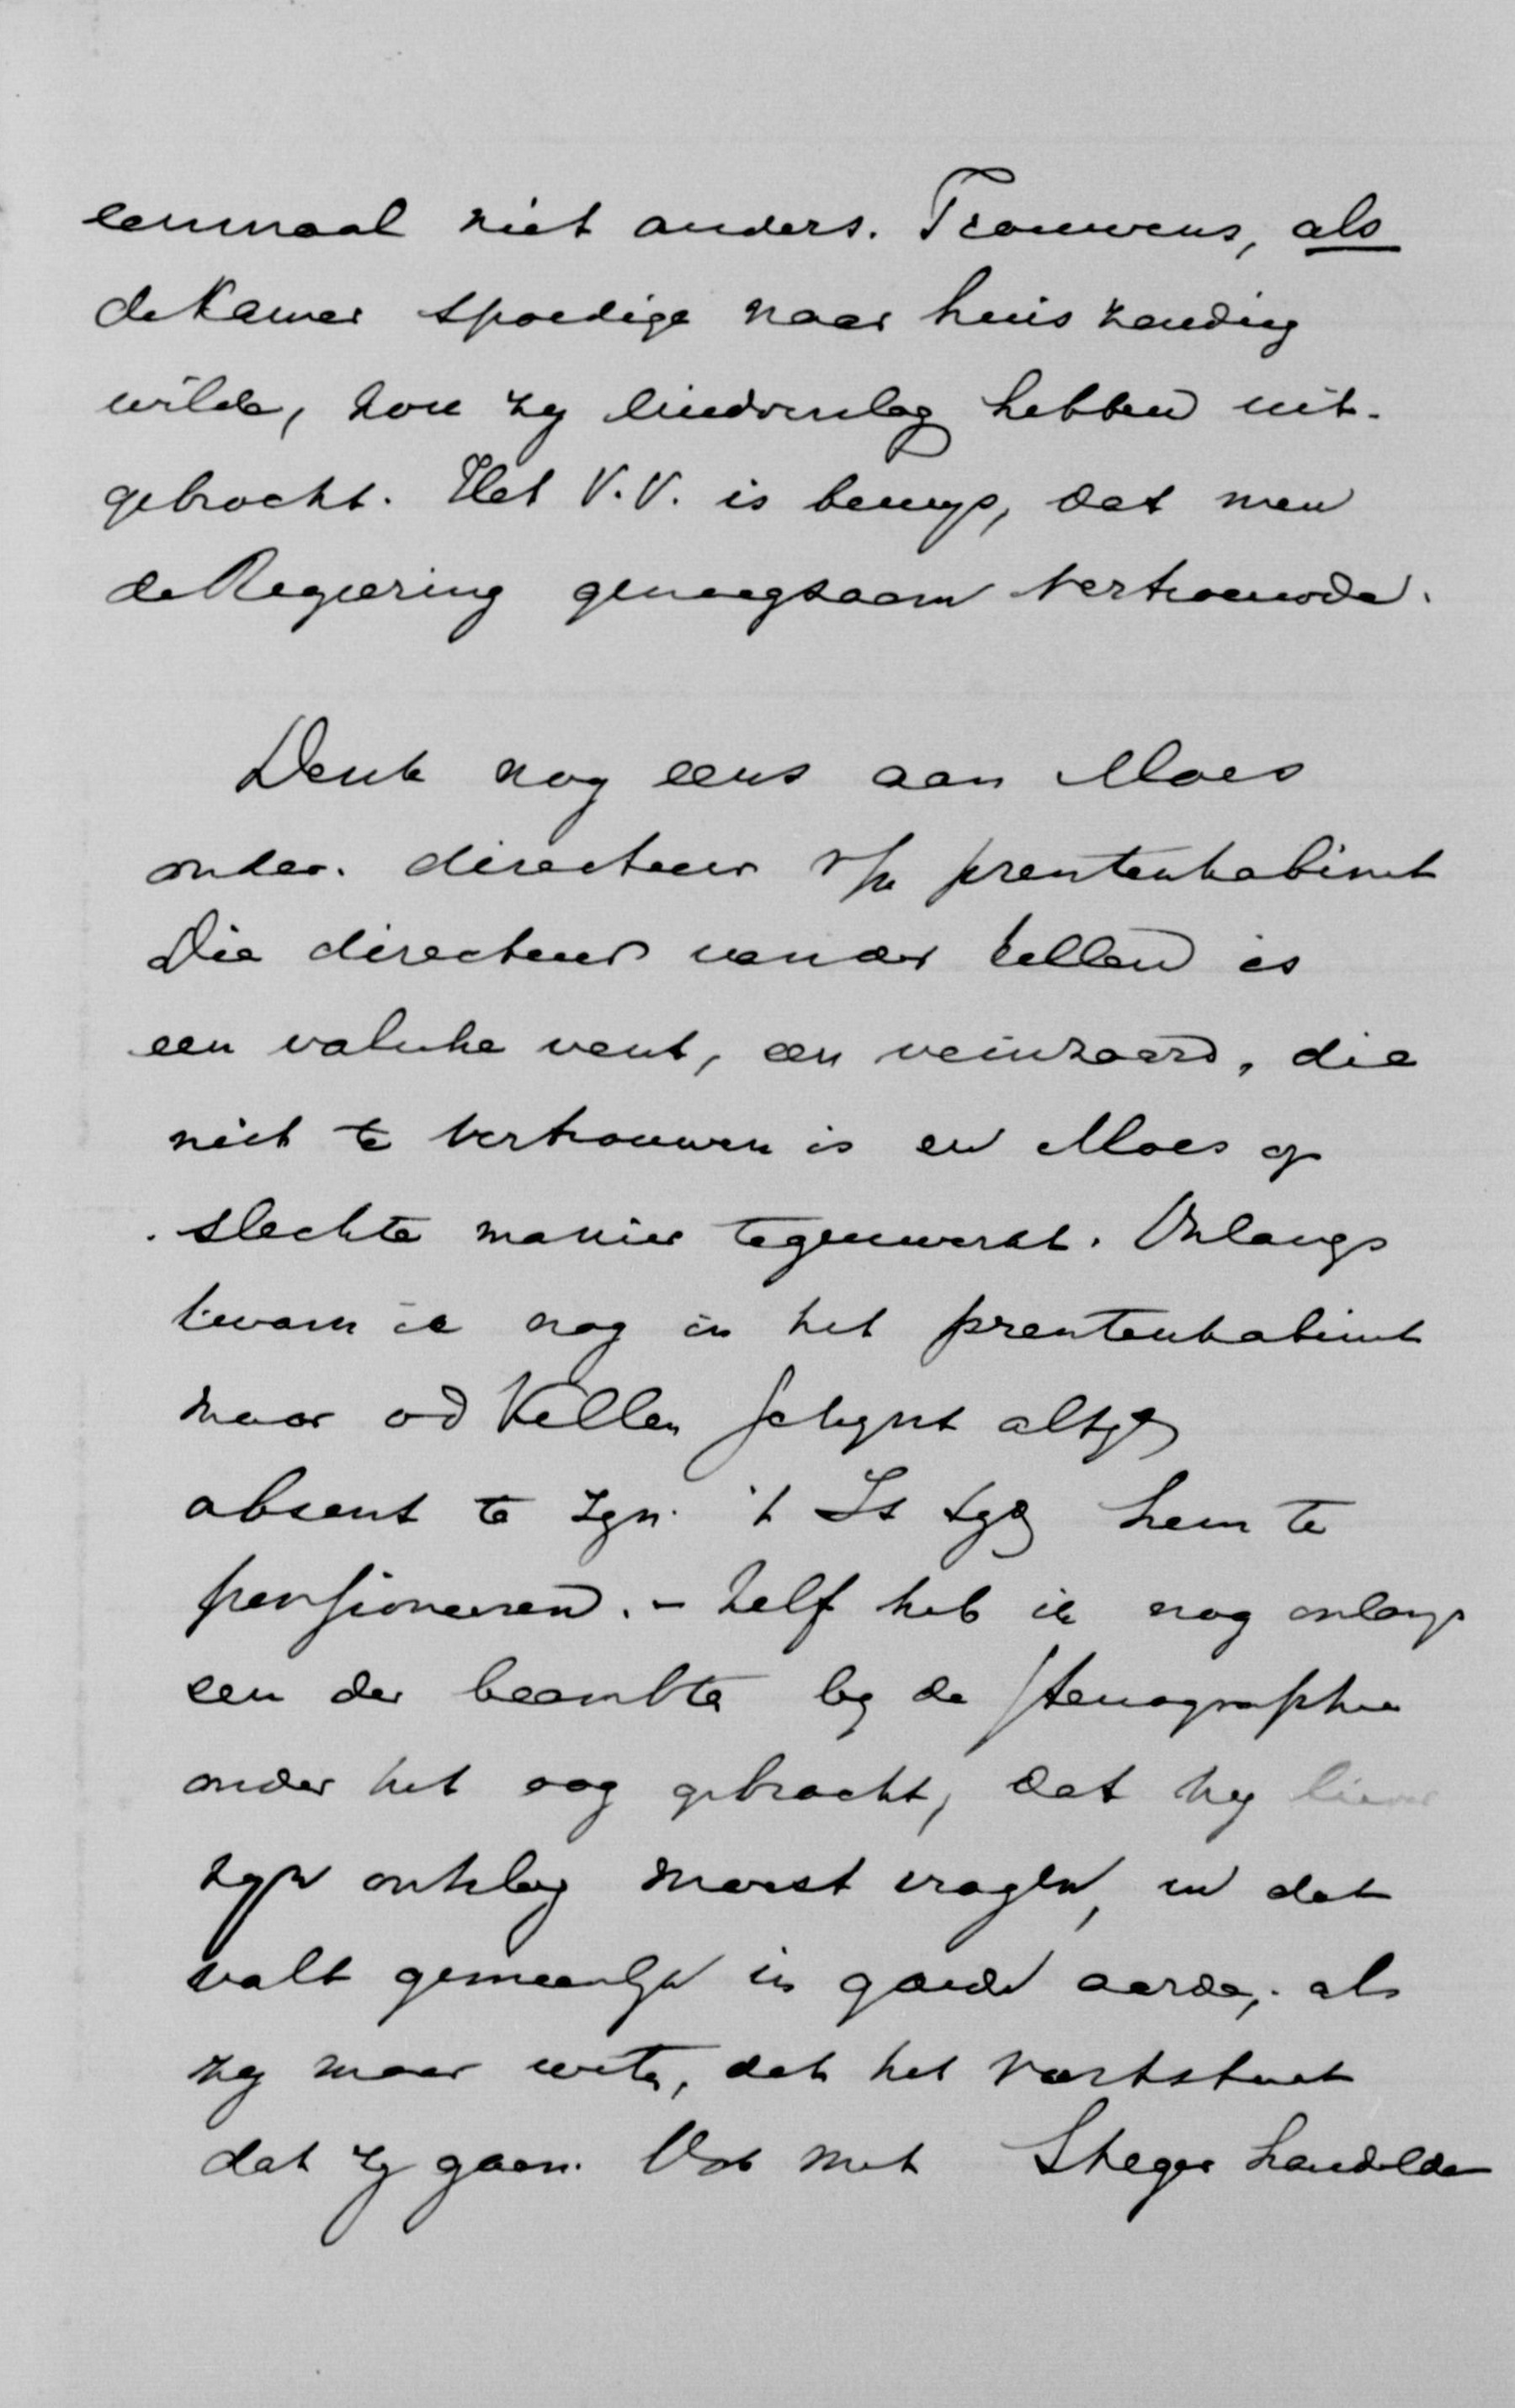 eenmaal niet anders. Trouwens, als
de Kamer spoedige naar huis zending
wilde, zou zij eindverslag hebben uit-
gebracht. Het V.V. is bewijs, dat men
de Regeering genoegzaam vertrouwde.
Denk nog eens aan Moes
onder-directeur v/h prentenkabinet
Die directeur van der Kellen is
een valsche vent, een veinzaard, die
niet te vertrouwen is en Moes op
slechte manier tegenwerkt. Onlangs
kwam ik nog in het prentenkabinet
maar vd Kellen schijnt altijd
absent te zijn. 't Is tijd hem te
pensioneeren. - Zelf heb ik nog onlangs
een der beambte bij de stenographie
onder het oog gebracht, dat hij liever
zijn ontslag moest vragen, en dat
valt gemeenlijk in goede aarde, als
zij maar weten, dat het vaststaat
dat zij gaan. Ook met Steger handelde